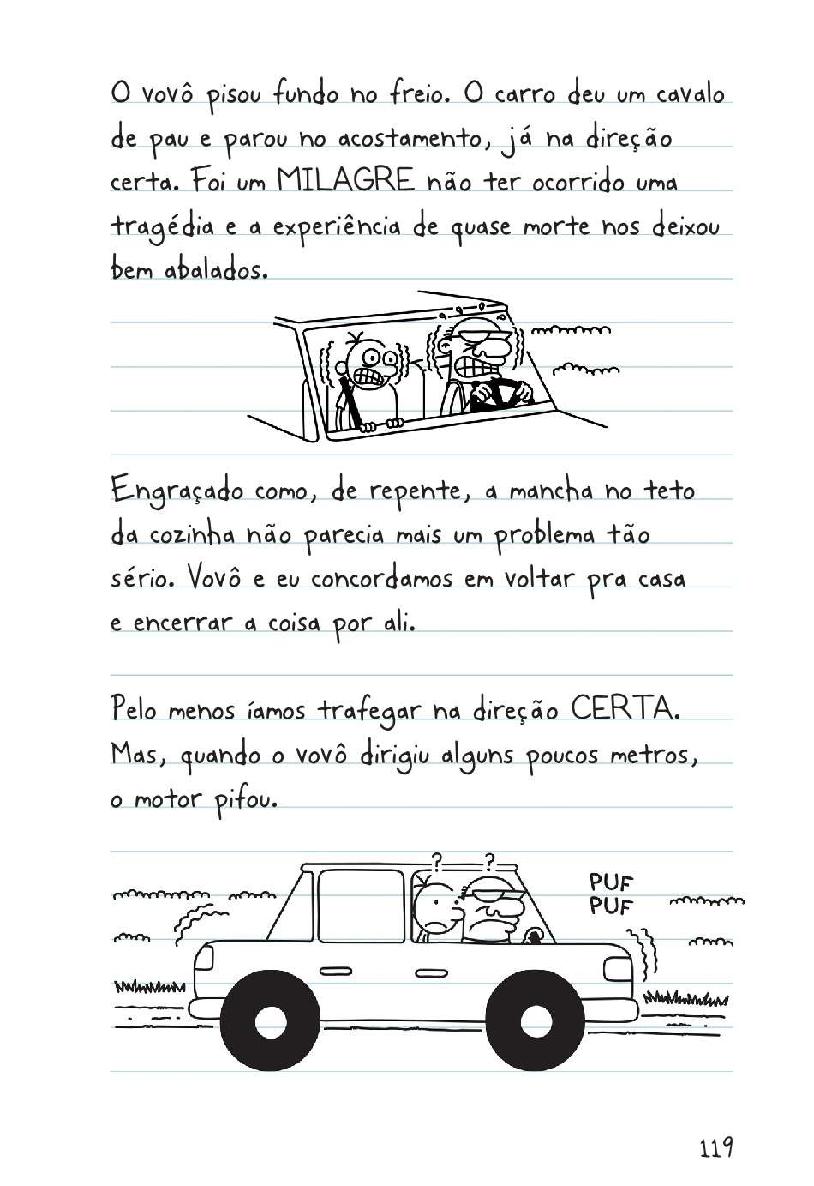 O vovô pisou fundo no freio. O carro deu um cavalo
de pau e parou no acostamento, já na direção
certa. Foi um MILAGRE não ter ocorrido uma
tragédia e a experiência de quase morte nos deixou
bem abalados.
Engraçado como, de repente, a mancha no teto
da cozinha não parecia mais um problema tão
sério. Vovô e eu concordamos em voltar pra casa
e encerrar a coisa por ali.
Pelo menos íamos trafegar na direção CERTA.
Mas, quando o vovô dirigiu alguns poucos metros,
o motor pifou.
? ?
PUF
PUF
119